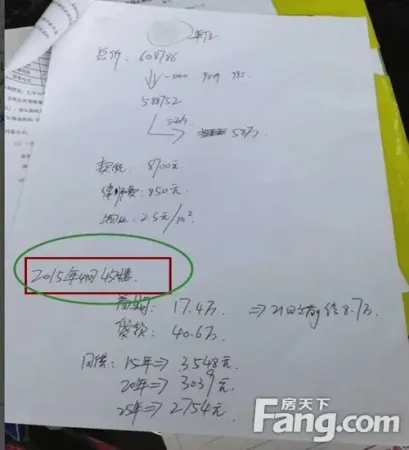 单位
总价: 608786
588752
587万
契税: 8700元
律师费: 850元
物业: 2.5元/m²
2015年4月收楼.
首期: 17.4万 ⇒ 21日前给8.7万
贷款: 40.6万
月供: 15年⇒3548元
20年⇒3039元
25年⇒2754元
房天下
Fang.com